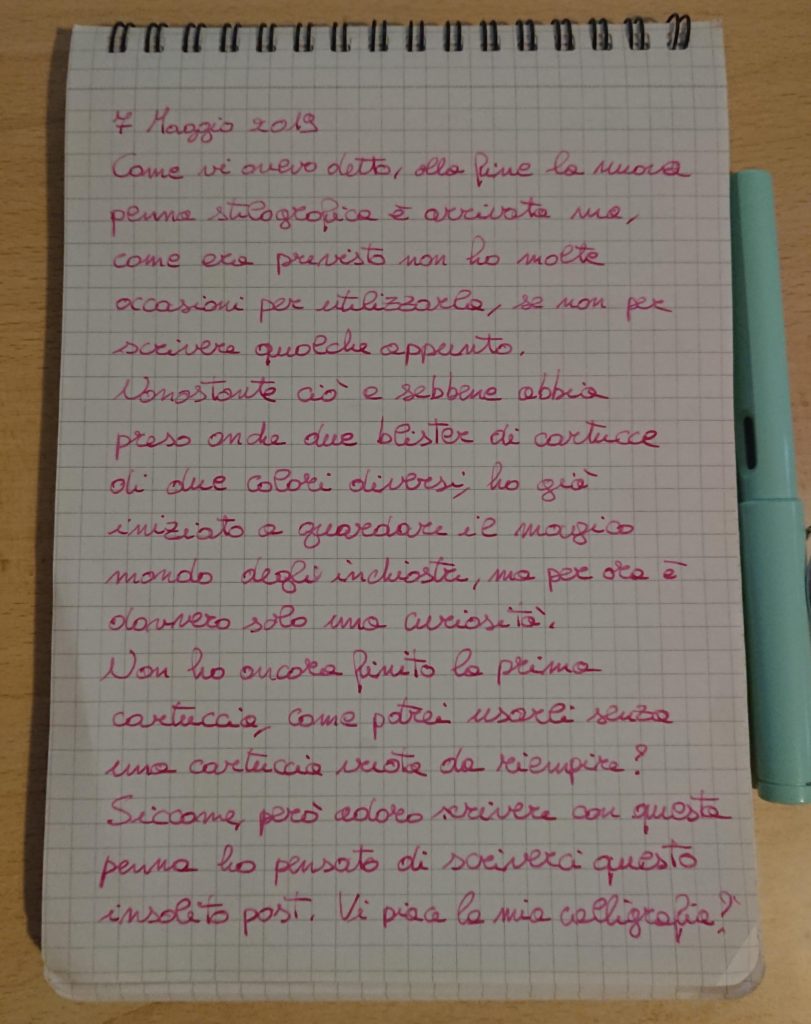 7 Maggio 2019
Come vi avevo detto, alla fine la nuova
penna stilografica è arrivata ma,
come era previsto non ho molte
occasioni per utilizzarla, se non per
scrivere qualche appunto.
Nonostante ciò e sebbene abbia
preso anche due blister di cartucce
di due colori diversi, ho già
iniziato a guardare il magico
mondo degli inchiostri, ma per ora è
davvero solo una curiosità.
Non ho ancora finito la prima
cartuccia, come potrei usarli senza
una cartuccia vuota da riempire?
Siccome, però adoro scrivere con questa
penna ho pensato di scriverci questo
insolito post. Vi piace la mia calligrafia?